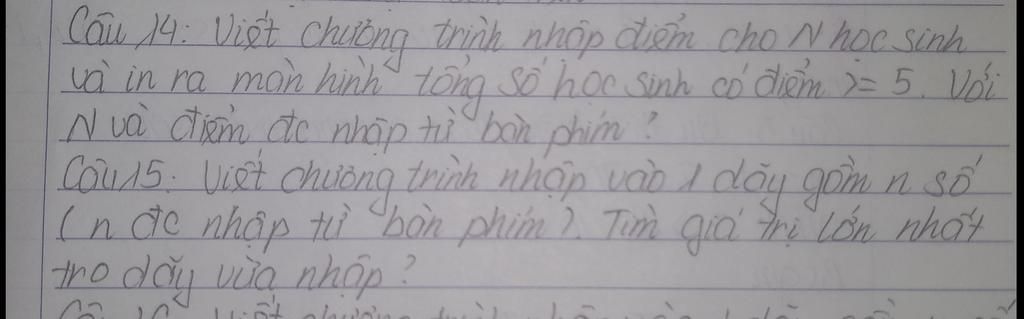 Câu 14: Viết chương trình nhập điểm cho N học sinh
và in ra màn hình tổng số học sinh có điểm >= 5. Với
N và điểm đc nhập từ bàn phím?
Câu 15: Viết chương trình nhập vào 1 dãy gồm n số
(n đc nhập từ bàn phím). Tìm giá trị lớn nhất
tro dãy vừa nhập?